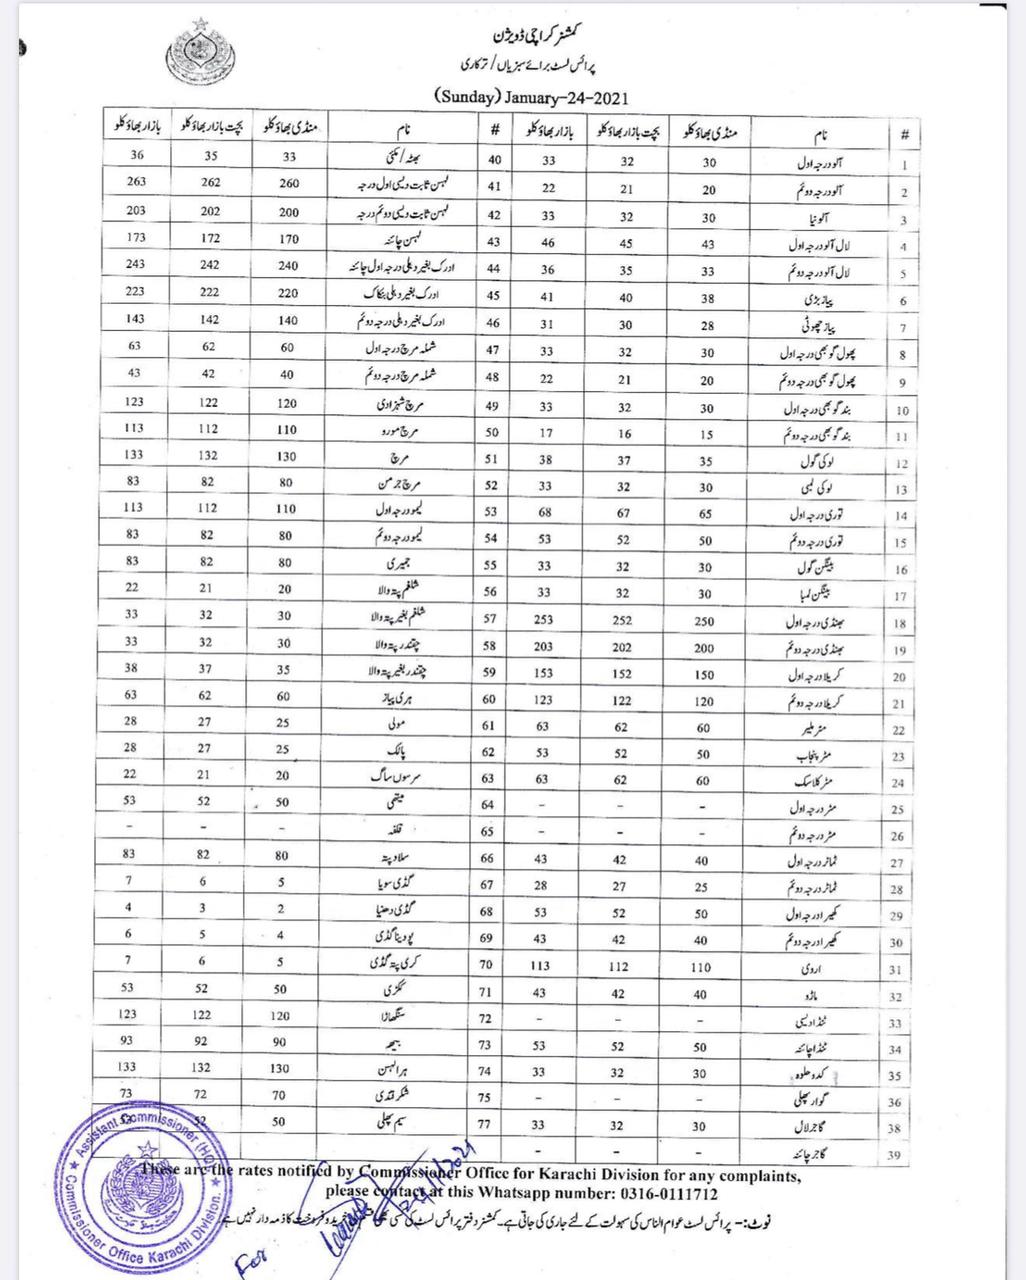 کمشنر کراچی ڈویژن
پرائس لسٹ برائے سبزیاں / ترکاری
(Sunday) January-24-2021
# نام منڈی بھاؤ کلو بچت بازار بھاؤ کلو بازار بھاؤ کلو # نام منڈی بھاؤ کلو بچت بازار بھاؤ کلو بازار بھاؤ کلو
1 آلو درجہ اول 30 32 33 40 بھٹہ / مکئی 33 35 36
2 آلو درجہ دوئم 20 21 22 41 لہسن ثابت دیسی اول درجہ 260 262 263
3 آلو نیا 30 32 33 42 لہسن ثابت دیسی دوئم درجہ 200 202 203
4 لال آلو درجہ اول 43 45 46 43 لہسن چائنہ 170 172 173
5 لال آلو درجہ دوئم 33 35 36 44 ادرک بغیر دہلی درجہ اول چائنہ 240 242 243
6 پیاز بڑی 38 40 41 45 ادرک بغیر دہلی بنکاک 220 222 223
7 پیاز چھوٹی 28 30 31 46 ادرک بغیر دہلی درجہ دوئم 140 142 143
8 پھول گوبھی درجہ اول 30 32 33 47 شملہ مرچ درجہ اول 60 62 63
9 پھول گوبھی درجہ دوئم 20 21 22 48 شملہ مرچ درجہ دوئم 40 42 43
10 بند گوبھی درجہ اول 30 32 33 49 مرچ شہزادی 120 122 123
11 بند گوبھی درجہ دوئم 15 16 17 50 مرچ مورو 110 112 113
12 لوکی گول 35 37 38 51 مرچ 130 132 133
13 لوکی لمبی 30 32 33 52 مرچ جرمن 80 82 83
14 توری درجہ اول 65 67 68 53 لیمو درجہ اول 110 112 113
15 توری درجہ دوئم 50 52 53 54 لیمو درجہ دوئم 80 82 83
16 بینگن گول 30 32 33 55 جمیری 80 82 83
17 بینگن لمبا 30 32 33 56 شلغم پتہ والا 20 21 22
18 بھنڈی درجہ اول 250 252 253 57 شلغم بغیر پتہ والا 30 32 33
19 بھنڈی درجہ دوئم 200 202 203 58 چقندر پتہ والا 30 32 33
20 کریلا درجہ اول 150 152 153 59 چقندر بغیر پتہ والا 35 37 38
21 کریلا درجہ دوئم 120 122 123 60 ہری پیاز 60 62 63
22 مٹر ملیر 60 62 63 61 مولی 25 27 28
23 مٹر پنجاب 50 52 53 62 پالک 25 27 28
24 مٹر کلاسک 60 62 63 63 سرسوں ساگ 20 21 22
25 مٹر درجہ اول - - - 64 میتھی 50 52 53
26 مٹر درجہ دوئم - - - 65 قلفہ - - -
27 ٹماٹر درجہ اول 40 42 43 66 سلاد پتہ 80 82 83
28 ٹماٹر درجہ دوئم 25 27 28 67 گڈی سویا 5 6 7
29 کھیرا درجہ اول 50 52 53 68 گڈی دھنیا 2 3 4
30 کھیرا درجہ دوئم 40 42 43 69 پودینا گڈی 4 5 6
31 اروی 110 112 113 70 کری پتہ گڈی 5 6 7
32 ماڑو 40 42 43 71 ککڑی 50 52 53
33 ٹنڈا دیسی - - - 72 سنگھاڑا 120 122 123
34 ٹنڈا چائنہ 50 52 53 73 بیھ 90 92 93
35 کدو حلوہ 30 32 33 74 ہرا لہسن 130 132 133
36 گوار پھلی - - - 75 شکر قندی 70 72 73
38 گاجر لال 30 32 33 77 سیم پھلی 50 52 53
39 گاجر چائنہ - - -
These are the rates notified by Commissioner Office for Karachi Division for any complaints,
please contact at this Whatsapp number: 0316-0111712
نوٹ:- پرائس لسٹ عوام الناس کی سہولت کے لئے جاری کی جاتی ہے۔ کمشنر دفتر پرائس لسٹ کی کسی بھی خرید و فروخت کا ذمہ دار نہیں ہے۔
Assistant Commissioner (HQ)
Commissioner Office Karachi Division.
For
24/1/2021